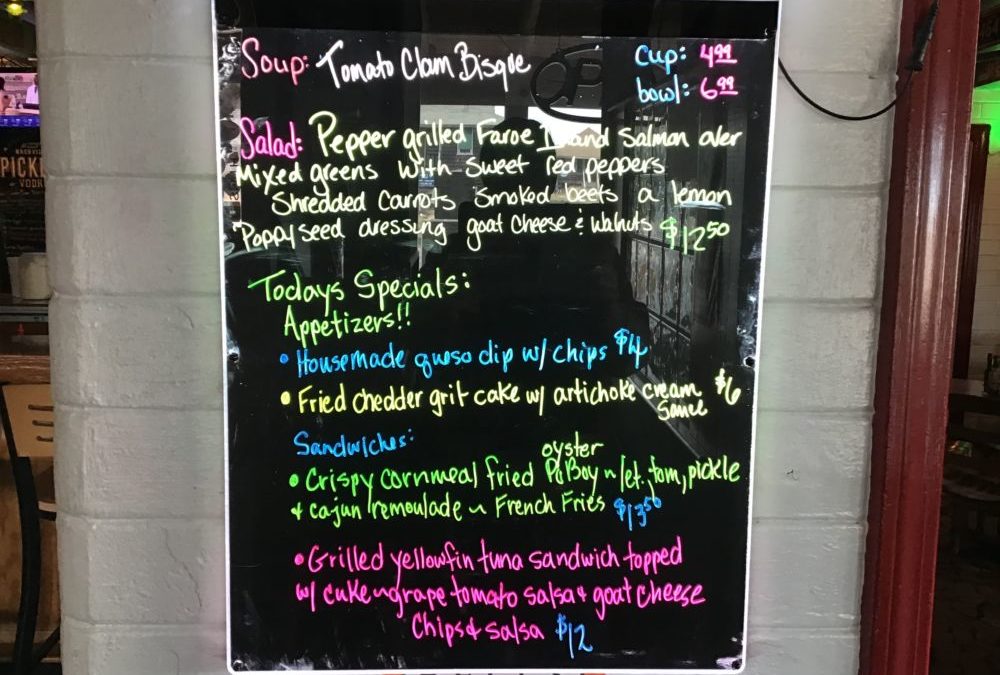 Soup: Tomato Clam Bisque cup: 4.99
bowl: 6.99
Salad: Pepper grilled Faroe Island Salmon over
Mixed greens with sweet red peppers
Shredded Carrots Smoked beets a lemon
Poppyseed dressing goat cheese & walnuts $12.50
Todays Specials:
Appetizers!!
• Housemade queso dip w/ chips $4
• Fried chedder grit cake w/ artichoke cream $6
sauce
Sandwiches:
oyster
• Crispy cornmeal fried Po Boy ~ let. tom, pickle
& cajun remoulade ~ French Fries $13.50
• Grilled yellowfin tuna sandwich topped
w/ cuke ~ grape tomato salsa & goat cheese
Chips & salsa $12
PICKL
VODK